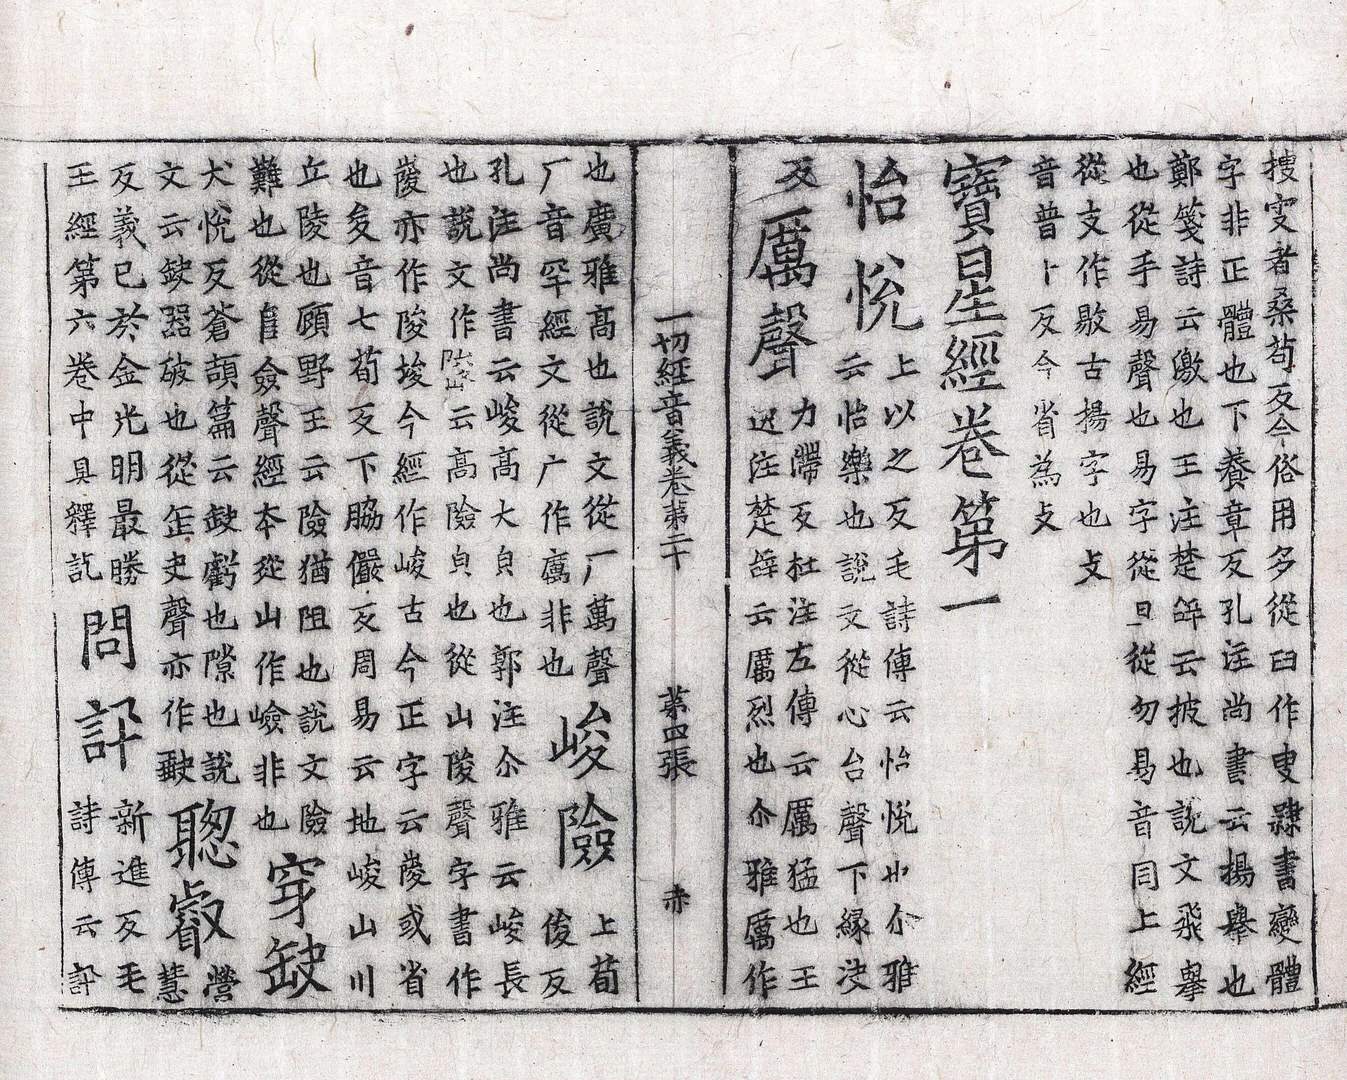 捜㝊者桑苟反今俗用多從臼作叟隷書變體
字非正體也下養章反孔注尚書云揚舉也
鄭箋詩云激也王注楚辝云披也說文飛擧
也從手昜聲也昜字從旦從勿昜音同上經
從攴作敭古揚字也攴
音普卜反今省為攵
寶星經卷第一
怡悅
上以之反毛詩傳云怡悅也尒雅
云怡樂也說文從心台聲下緣決
反
厲聲
力滯反杜注左傳云厲猛也王
逸注楚辝云厲烈也尒雅厲作
一切經音義卷第二十 第四張 赤
也廣雅高也說文從厂萬聲
厂音罕經文從广作厲非也
峻險
上荀
俊反
孔注尚書云峻高大皃也郭注尒雅云峻長
也說文作陖峻云高險皃也從山陵聲字書作
蔆亦作陵埈今經作峻古今正字云蔆或省
也夋音七荀反下脇儼反周易云地峻山川
丘陵也顧野王云險猶阻也說文險
難也從𨸏僉聲經本從山作嶮非也
穿缺
犬悅反蒼頡篇云缺虧也隙也說
文云缺器破也從缶史聲亦作𡙇
聦叡
營
慧
反義已於金光明最勝
王經第六卷中具釋訖
問訊
新進反毛
詩傳云訊